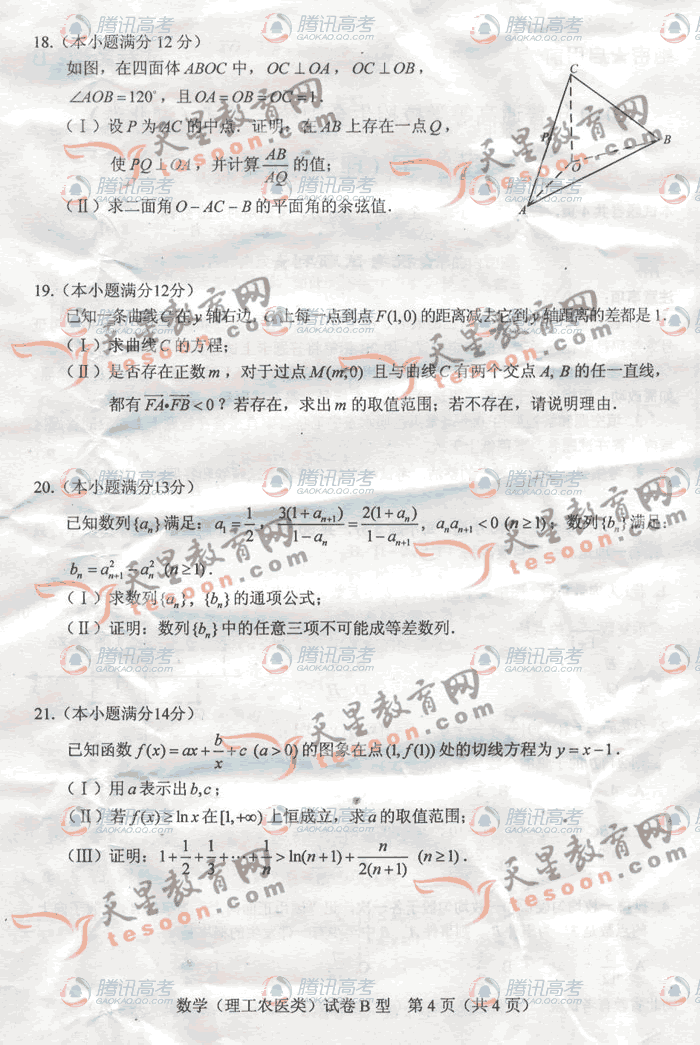 18.（本小题满分 12 分）
如图，在四面体 ABOC 中，OC⊥OA，OC⊥OB，
∠AOB=120°，且OA=OB=OC=1.
（Ⅰ）设P为AC的中点．证明：在AB上存在一点Q，
使PQ⊥OA，并计算AB/AQ的值；
（Ⅱ）求二面角O-AC-B的平面角的余弦值.
C
P
B
O
A
19.（本小题满分12分）
已知一条曲线C在y轴右边，C上每一点到点F(1,0)的距离减去它到y轴距离的差都是1.
（Ⅰ）求曲线C的方程；
（Ⅱ）是否存在正数m，对于过点M(m,0)且与曲线C有两个交点A, B的任一直线，
都有FA•FB<0？若存在，求出m的取值范围；若不存在，请说明理由.
20.（本小题满分13分）
已知数列{aₙ}满足：a₁=1/2，3(1+aₙ₊₁)/(1-aₙ)=2(1+aₙ)/(1-aₙ₊₁)，aₙaₙ₊₁<0 (n≥1)；数列{bₙ}满足：
bₙ=a²ₙ₊₁-a²ₙ (n≥1).
（Ⅰ）求数列{aₙ}，{bₙ}的通项公式；
（Ⅱ）证明：数列{bₙ}中的任意三项不可能成等差数列.
21.（本小题满分14分）
已知函数f(x)=ax+b/x+c (a>0)的图象在点(1, f(1))处的切线方程为y=x-1.
（Ⅰ）用a表示出b,c；
（Ⅱ）若f(x)≥ln x在[1,+∞)上恒成立，求a的取值范围；
（Ⅲ）证明：1+1/2+1/3+⋯+1/n>ln(n+1)+n/2(n+1) (n≥1).
数学（理工农医类）试卷B型 第4页（共4页）
腾讯高考
GAOKAO.QQ.COM
天星教育网
tesoon.com